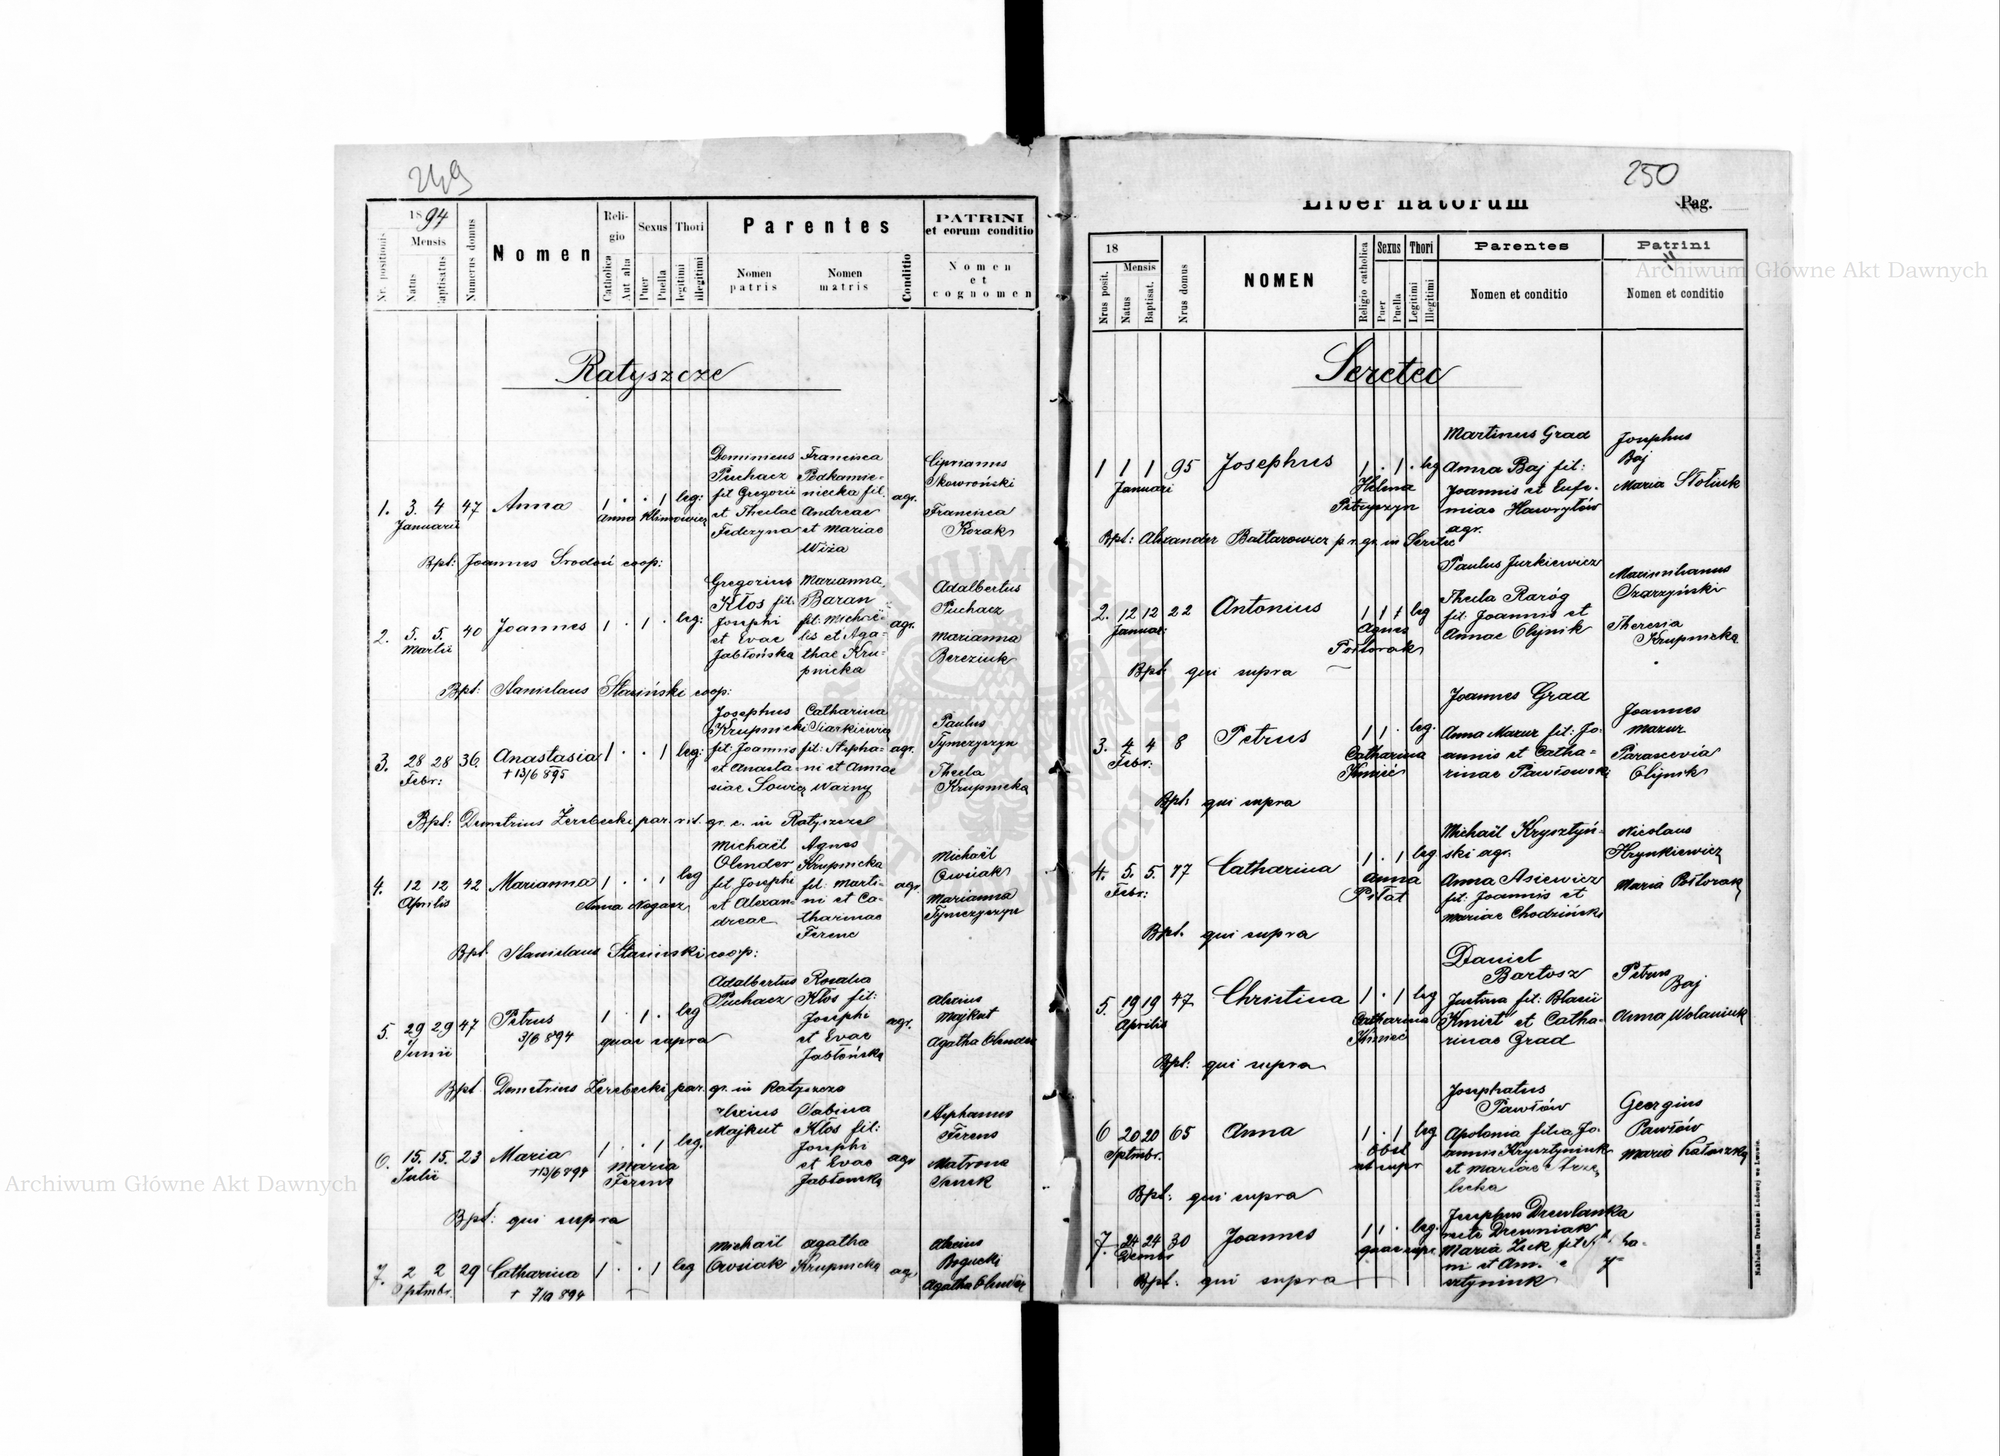 249
1894
Nr. positionis
Mensis
Natus
Baptisatus
Numerus domus
Nomen
Religio
Catholica
Aut alia
Sexus
Puer
Puella
Thori
legitimi
illegitimi
Parentes
Nomen patris
Nomen matris
Conditio
PATRINI
et eorum conditio
Nomen
et
cognomen
Ratyszcze
1. 3. 4 47 Anna 1 . . 1 leg: agr.
Januarii
Anna Klimowicz
Dominicus Puchacz fil Gregorii et Theclae Fedczyna
Francisca Podkamieniecka fil. Andreae et Mariae Wiża
Ciprianus Skowroński
Francisca Kozak
Bpt: Joannes Srodoń coop:
2. 5. 5. 40 Joannes 1 . 1 . leg: agr.
Martii
Gregorius Kłos fil. Josephi et Evae Jabłońska
Marianna Baran fil: Michaelis et Agathae Krupnicka
Adalbertus Puchacz
Marianna Bereziuk
Bpt: Stanislaus Stasiński coop:
3. 28 28 36. Anastasia 1 . . 1 leg: agr.
Febr: † 13/6 895
Josephus Krupnicki fil: Joannis et Anastasiae Sowicz
Catharina Siarkiewicz fil: Stephani et Annae Ważny
Paulus Tymczyszyn
Thecla Krupnicka
Bpt: Demetrius Żerebecki par. rit. gr. c. in Ratyszcze
4. 12 12 42 Marianna 1 . . 1 leg agr.
Aprilis
Anna Nogacz
Michaël Olender fil Josephi et Alexandreae
Agnes Krupnicka fil: Martini et Catharinae Ferenc
Michaël Owsiak
Marianna Tymczyszyn
Bpt. Stanislaus Stasinski coop:
5. 29 29 47 Petrus 1 . 1 . leg agr.
Junii 3/8 894 quae supra
Adalbertus Puchacz
Rosalia Kłos fil: Josephi et Evae Jabłońska
Alexius Majkut
Agatha Olender
Bpt. Demetrius Żerebecki par. gr. in Ratyszcze
6. 15. 15. 23 Maria 1 . . 1 leg. agr
Julii † 13/6 894
Maria Ferens
Alexius Majkut
Sabina Kłos fil: Josephi et Evae Jabłonska
Stephanus Ferens
Matrona
Bpt: qui supra
7. 2 2 29 Catharina 1 . . 1 leg agr
Septmbr.
Michaël Owsiak
Agatha Krupnicka
Alexius Bogucki
Agatha Olender
250
Liber natorum
Pag.
18
Nrus posit.
Mensis
Natus
Baptisat.
Nrus domus
NOMEN
Religio catholica
Sexus
Puer
Puella
Thori
Legitimi
Illegitimi
Parentes
Nomen et conditio
Patrini
Nomen et conditio
Seretec
1 1 1 95 Josephus 1 . 1 . leg
Januari
Helena Petryszyn
Martinus Grad
Anna Baj fil: Joannis et Eufemiae Hawryłów agr.
Josephus Baj
Maria Stoliuk
Bpt: Alexander Bałtarowicz p. r. gr. in Seretec
2. 12 12 22 Antonius 1 1 † leg
Januar:
Agnes Połtorak
Paulus Jurkiewicz
Thecla Raróg fil: Joannis et Annae Olijnik
Maximilianus Ożarzyński
Theresia Krupnicka
Bpt. qui supra
3. 4 4 8 Petrus 1 1 . leg:
Febr:
Catharina Kmieć
Joannes Grad
Anna Mazur fil: Joannis et Catharinae Pawłowski
Joannes Mazur
Parascevia Olijnik
Bpt: qui supra
4. 5. 5. 77 Catharina 1 . 1 leg
Febr:
Anna Piłat
Michaël Krysztyński agr.
Anna Asiewicz fil: Joannis et Mariae Chodzińska
Nicolaus Hrynkiewicz
Maria Połtorak
Bpt. qui supra
5. 19 19 47 Christina 1 . 1 leg
Aprilis
Catharina Kmieć
Daniel Bartosz
Justina fil: Blasii Kmieć et Catharinae Grad
Petrus Baj
Anna Wolaniuk
Bpt: qui supra
6 20 20 65 Anna 1 . 1 leg
Septmbr.
Obst ut supr
Josephatus Pawłów
Apolonia filia Joannis Krysztyniuk et Mariae Strzelecka
Georgius Pawłów
Maria
Bpt: qui supra
7. 24 24 30 Joannes 1 1 . leg.
Decembr
quae supr.
Josephus Drewlanka recte Drewniak
Maria Żuk fil
Bpt: qui supra
Nakładem Drukarni Ludowej we Lwowie.
Archiwum Główne Akt Dawnych
Archiwum Główne Akt Dawnych